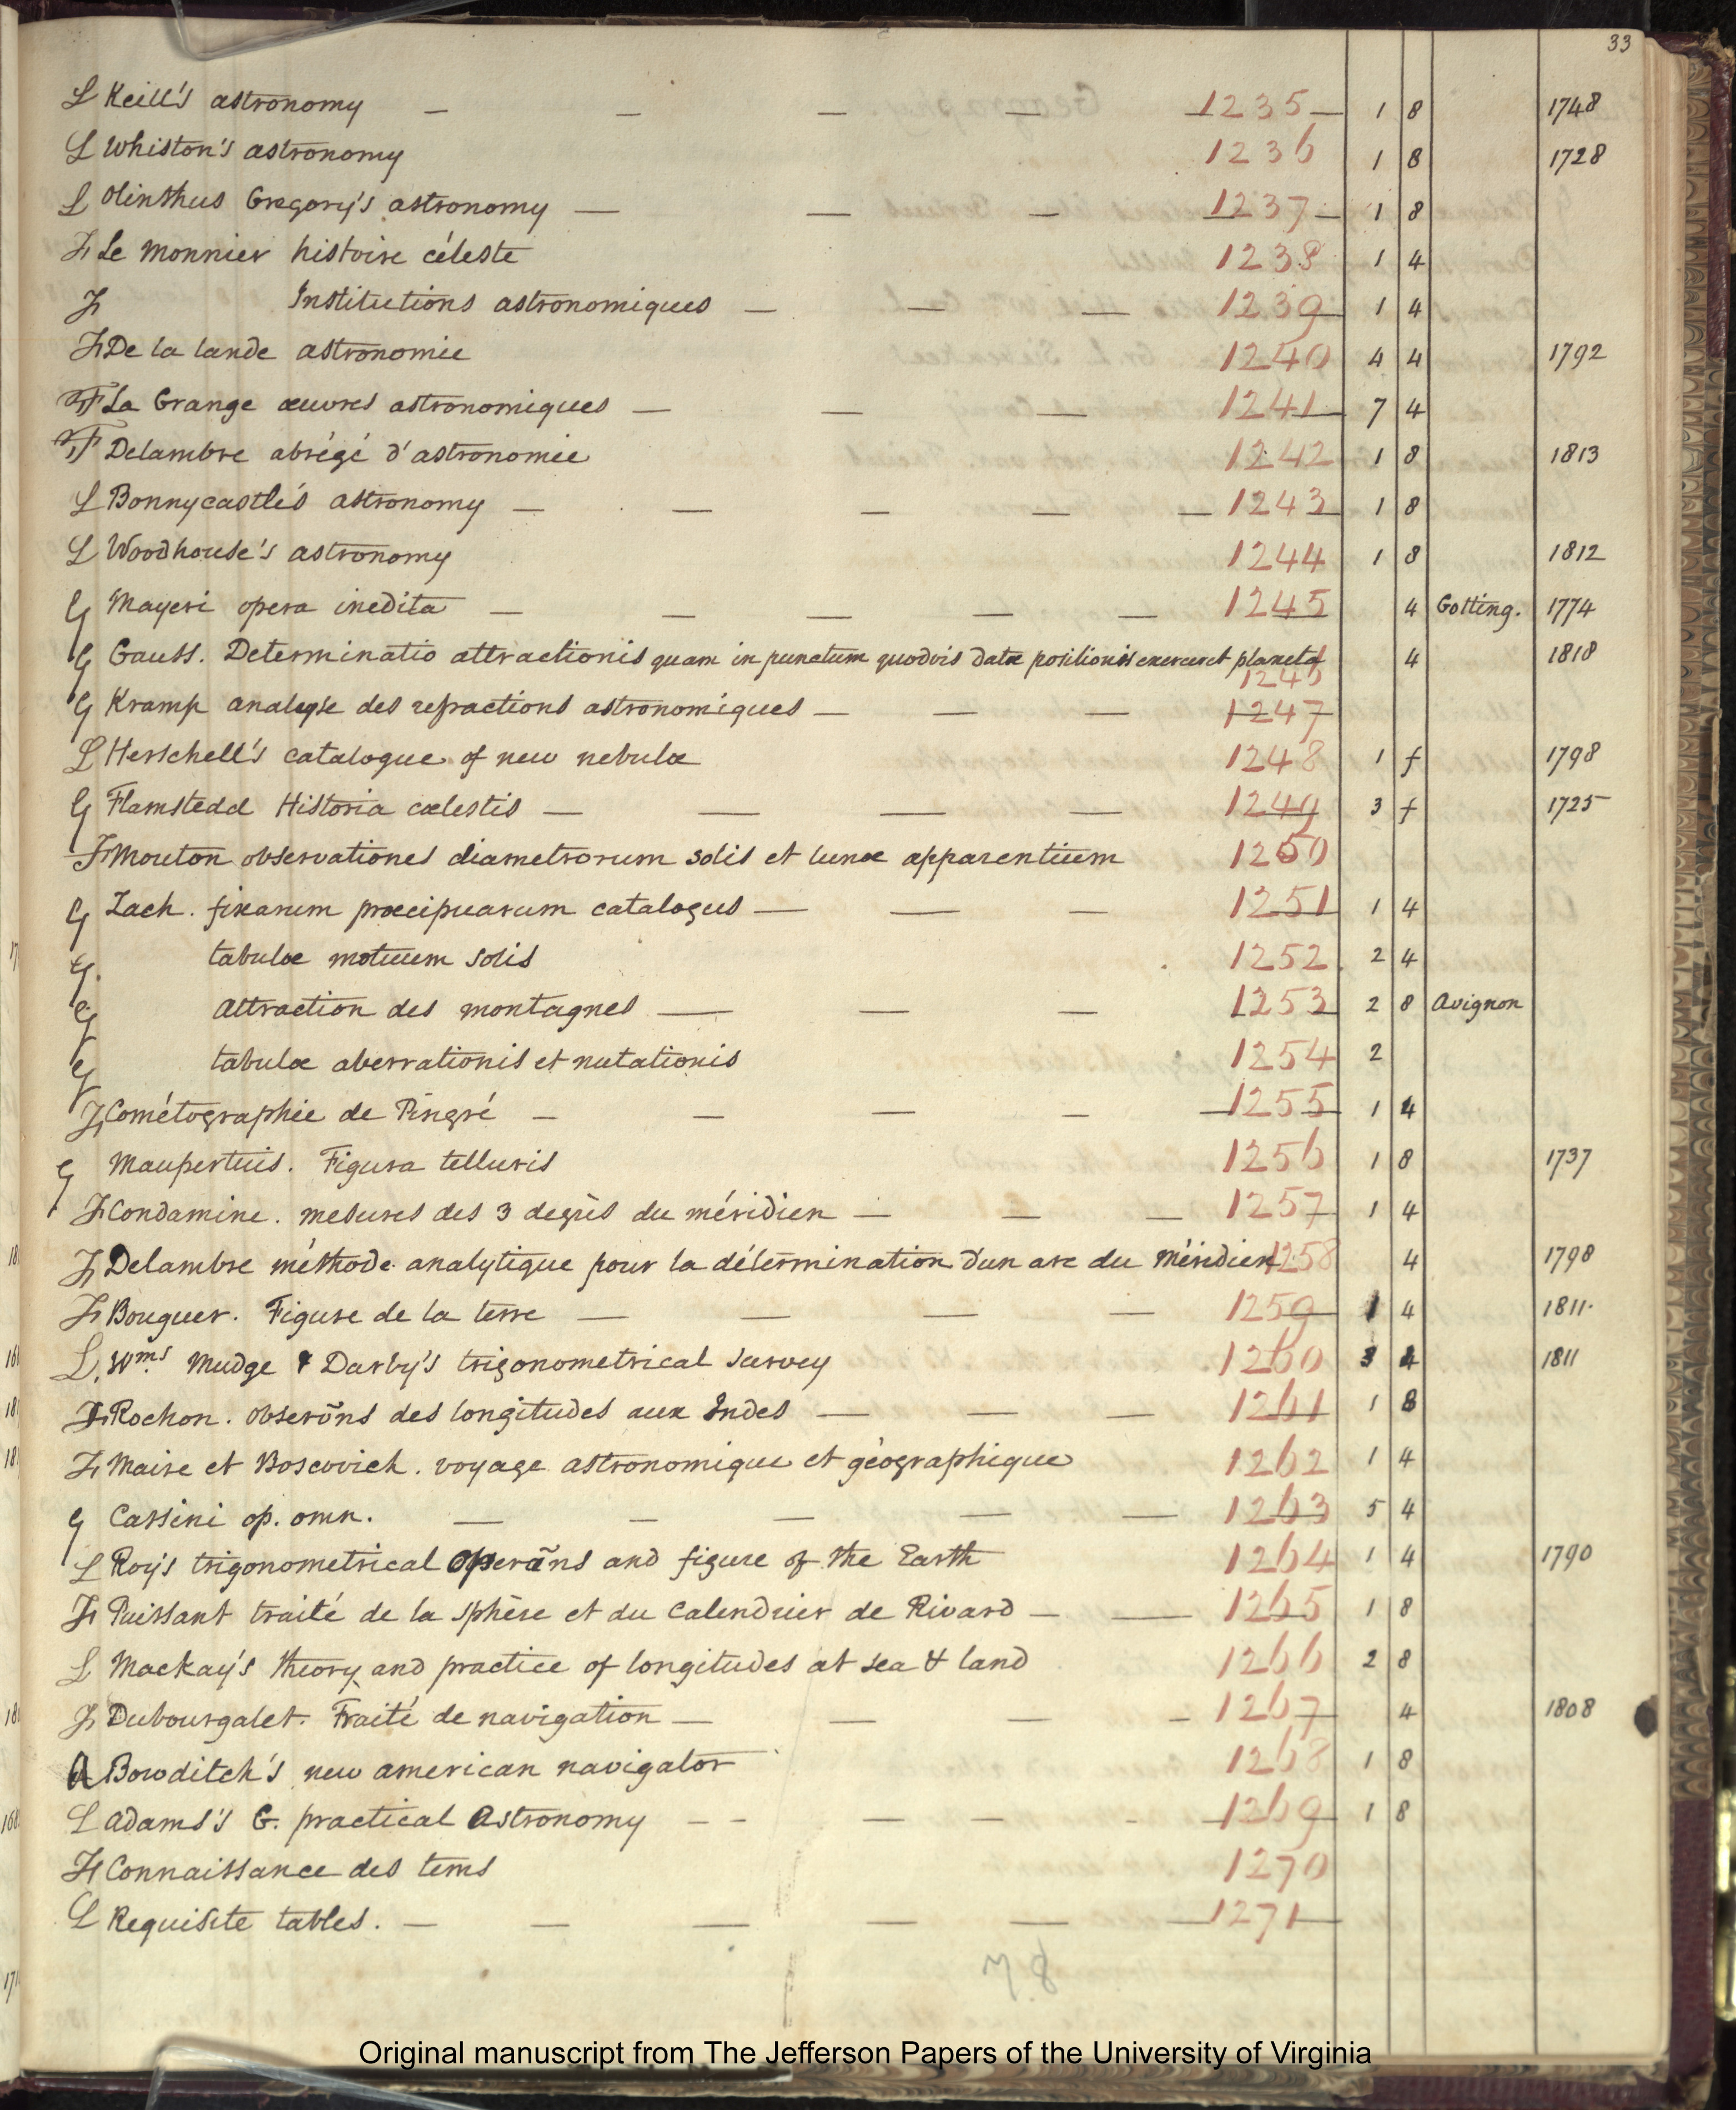 33
L Keill's astronomy — — — — 1235 1 8 1748
L Whiston's astronomy 1236 1 8 1728
L Olinthus Gregory's astronomy — — — 1237 1 8
F Le Monnier histoire céleste 1238 1 4
F Institutions astronomiques — — — 1239 1 4
F De la lande astronomie 1240 4 4 1792
F La Grange œuvres astronomiques — — — 1241 7 4
F Delambre abrégé d'astronomie 1242 1 8 1813
L Bonnycastle's astronomy — — — — — 1243 1 8
L Woodhouse's astronomy 1244 1 8 1812
G Mayeri opera inedita — — — — — 1245 4 Gotting. 1774
G Gauss. Determinatio attractionis quam in punctum quodvis datæ positionis exerceret planeta 4 1818
1246
G Kramp analyse des refractions astronomiques — — — 1247
L Herschell's catalogue of new nebulæ 1248 1 f 1798
G Flamstedd Historia cælestis — — — — 1249 3 f 1725
F Mouton observationes diametrorum solis et lunæ apparentium 1250
G Zach. fixarum præcipuarum catalogus — — — 1251 1 4
G. tabulæ motuum solis 1252 2 4
G attraction des montagnes — — — 1253 2 8 Avignon
G tabulæ aberrationis et nutationis 1254 2
F Cométographie de Pingré — — — — 1255 1 4
G Maupertuis. Figura telluris 1256 1 8 1737
F Condamine. mesures des 3 degrès du méridien — — — 1257 1 4
F Delambre méthode analytique pour la détermination d'un arc du Méridien 1258 4 1798
F Bouguer. Figure de la terre — — — — 1259 1 4 1811.
L. Wms Mudge & Darby's trigonometrical survey 1260 3 4 1811
F Rochon. obserṽns des longitudes aux Indes — — — 1261 1 8
F Maire et Boscovich. voyage astronomique et géographique 1262 1 4
G Cassini op. omn. — — — — — 1263 5 4
L Roy's trigonometrical operãns and figure of the Earth 1264 1 4 1790
F Puissant traité de la sphère et du Calendrier de Rivard — — 1265 1 8
L Mackay's theory and practice of longitudes at sea & land 1266 2 8
F Dubourgalet. Traité de navigation — — — — 1267 4 1808
A Bowditch's new american navigator 1268 1 8
L Adams's G. practical Astronomy — — — — - 1269 1 8
F Connaissance des tems 1270
L Requisite tables. — — — — — 1271
Original manuscript from The Jefferson Papers of the University of Virginia